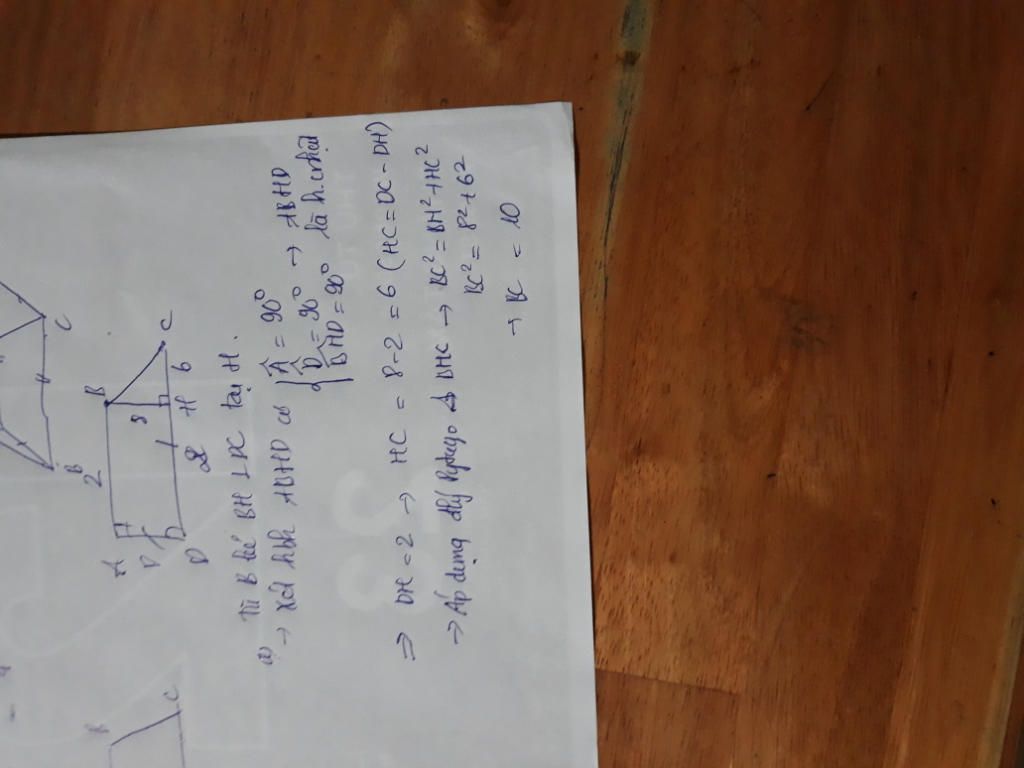 B
C
A
2
B
8
D
2
H
6
C
B
C
Từ B kẻ BH ⊥ DC tại H.
a) → Xét hbh ABHD có { Â = 90°
D̂ = 90° → ABHD
BHD = 90° là h.chữ nhật
⇒ DH = 2 → HC = 8 - 2 = 6 (HC = DC - DH)
→ Áp dụng đlý Pytago Δ BHC → BC² = BH² + HC²
BC² = 8² + 6²
→ BC = 10